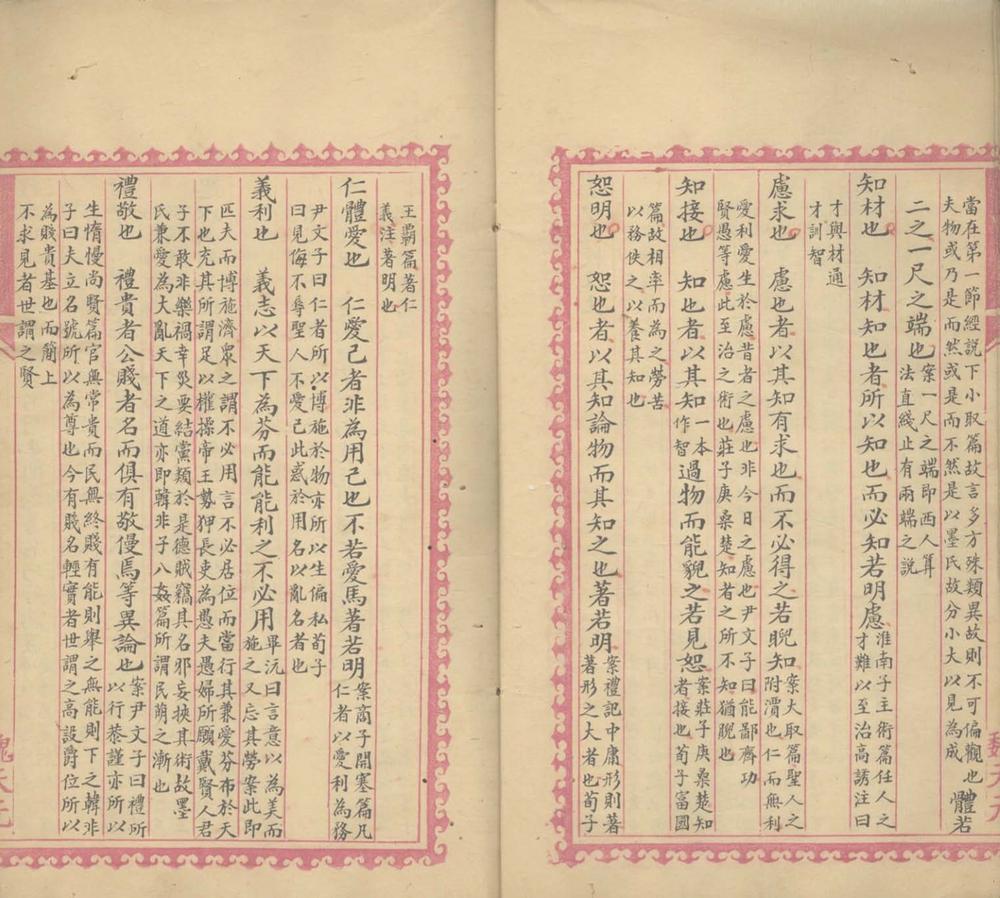 當在第一節經說下小取篇故言多方殊類異故則不可偏觀也
夫物或乃是而然或是而不然是以墨氏故分小大以見為成
體若
二之一尺之端也
案一尺之端即西人算
法直綫止有兩端之說
知材也 知材知也者所以知也而必知若明慮
淮南子主術篇任人之
才難以至治高誘注曰
才與材通
才訓智
慮求也 慮也者以其知有求也而不必得之若睨知
案大取篇聖人之
附瀆也仁而無利
愛利愛生於慮昔者之慮也非今日之慮也尹文子曰能鄙齊功
賢愚等慮此至治之術也莊子庚桑楚知者之所不知猶睨也
知接也 知也者以其知
一本
作智
過物而能貌之若見恕
案莊子庚桑楚知
者接也荀子富國
篇故相率而為之勞苦
以務佚之以養其知也
恕明也 恕也者以其知論物而其知之也著若明
案禮記中庸形則著
著形之大者也荀子
王霸篇著仁
義注著明也
仁體愛也 仁愛己者非為用己也不若愛馬著若明
案商子開塞篇凡
仁者以愛利為務
尹文子曰仁者所以博施於物亦所以生偏私荀子
曰見侮不辱聖人不愛己此惑於用名以亂名者也
義利也 義志以天下為芬而能能利之不必用
畢沅曰言意以為美而
施之又忘其勞案此即
匹夫而博施濟眾之謂不必用言不必居位而當行其兼愛芬布於天
下也充其所謂足以權操帝王勢狎長吏為愚夫愚婦所願戴賢人君
子不敢非樂禍幸災要結黨類於是德賊竊其名邪妄挾其術故墨
氏兼愛為大亂天下之道亦即韓非子八姦篇所謂民萌之漸也
禮敬也 禮貴者公賤者名而俱有敬僈焉等異論也
案尹文子曰禮所
以行恭謹亦所以
生惰慢尚賢篇官無常貴而民無終賤有能則舉之無能則下之韓非
子曰夫立名號所以為尊也今有賤名輕實者世謂之高設爵位所以
為賤貴基也而簡上
不求見者世謂之賢